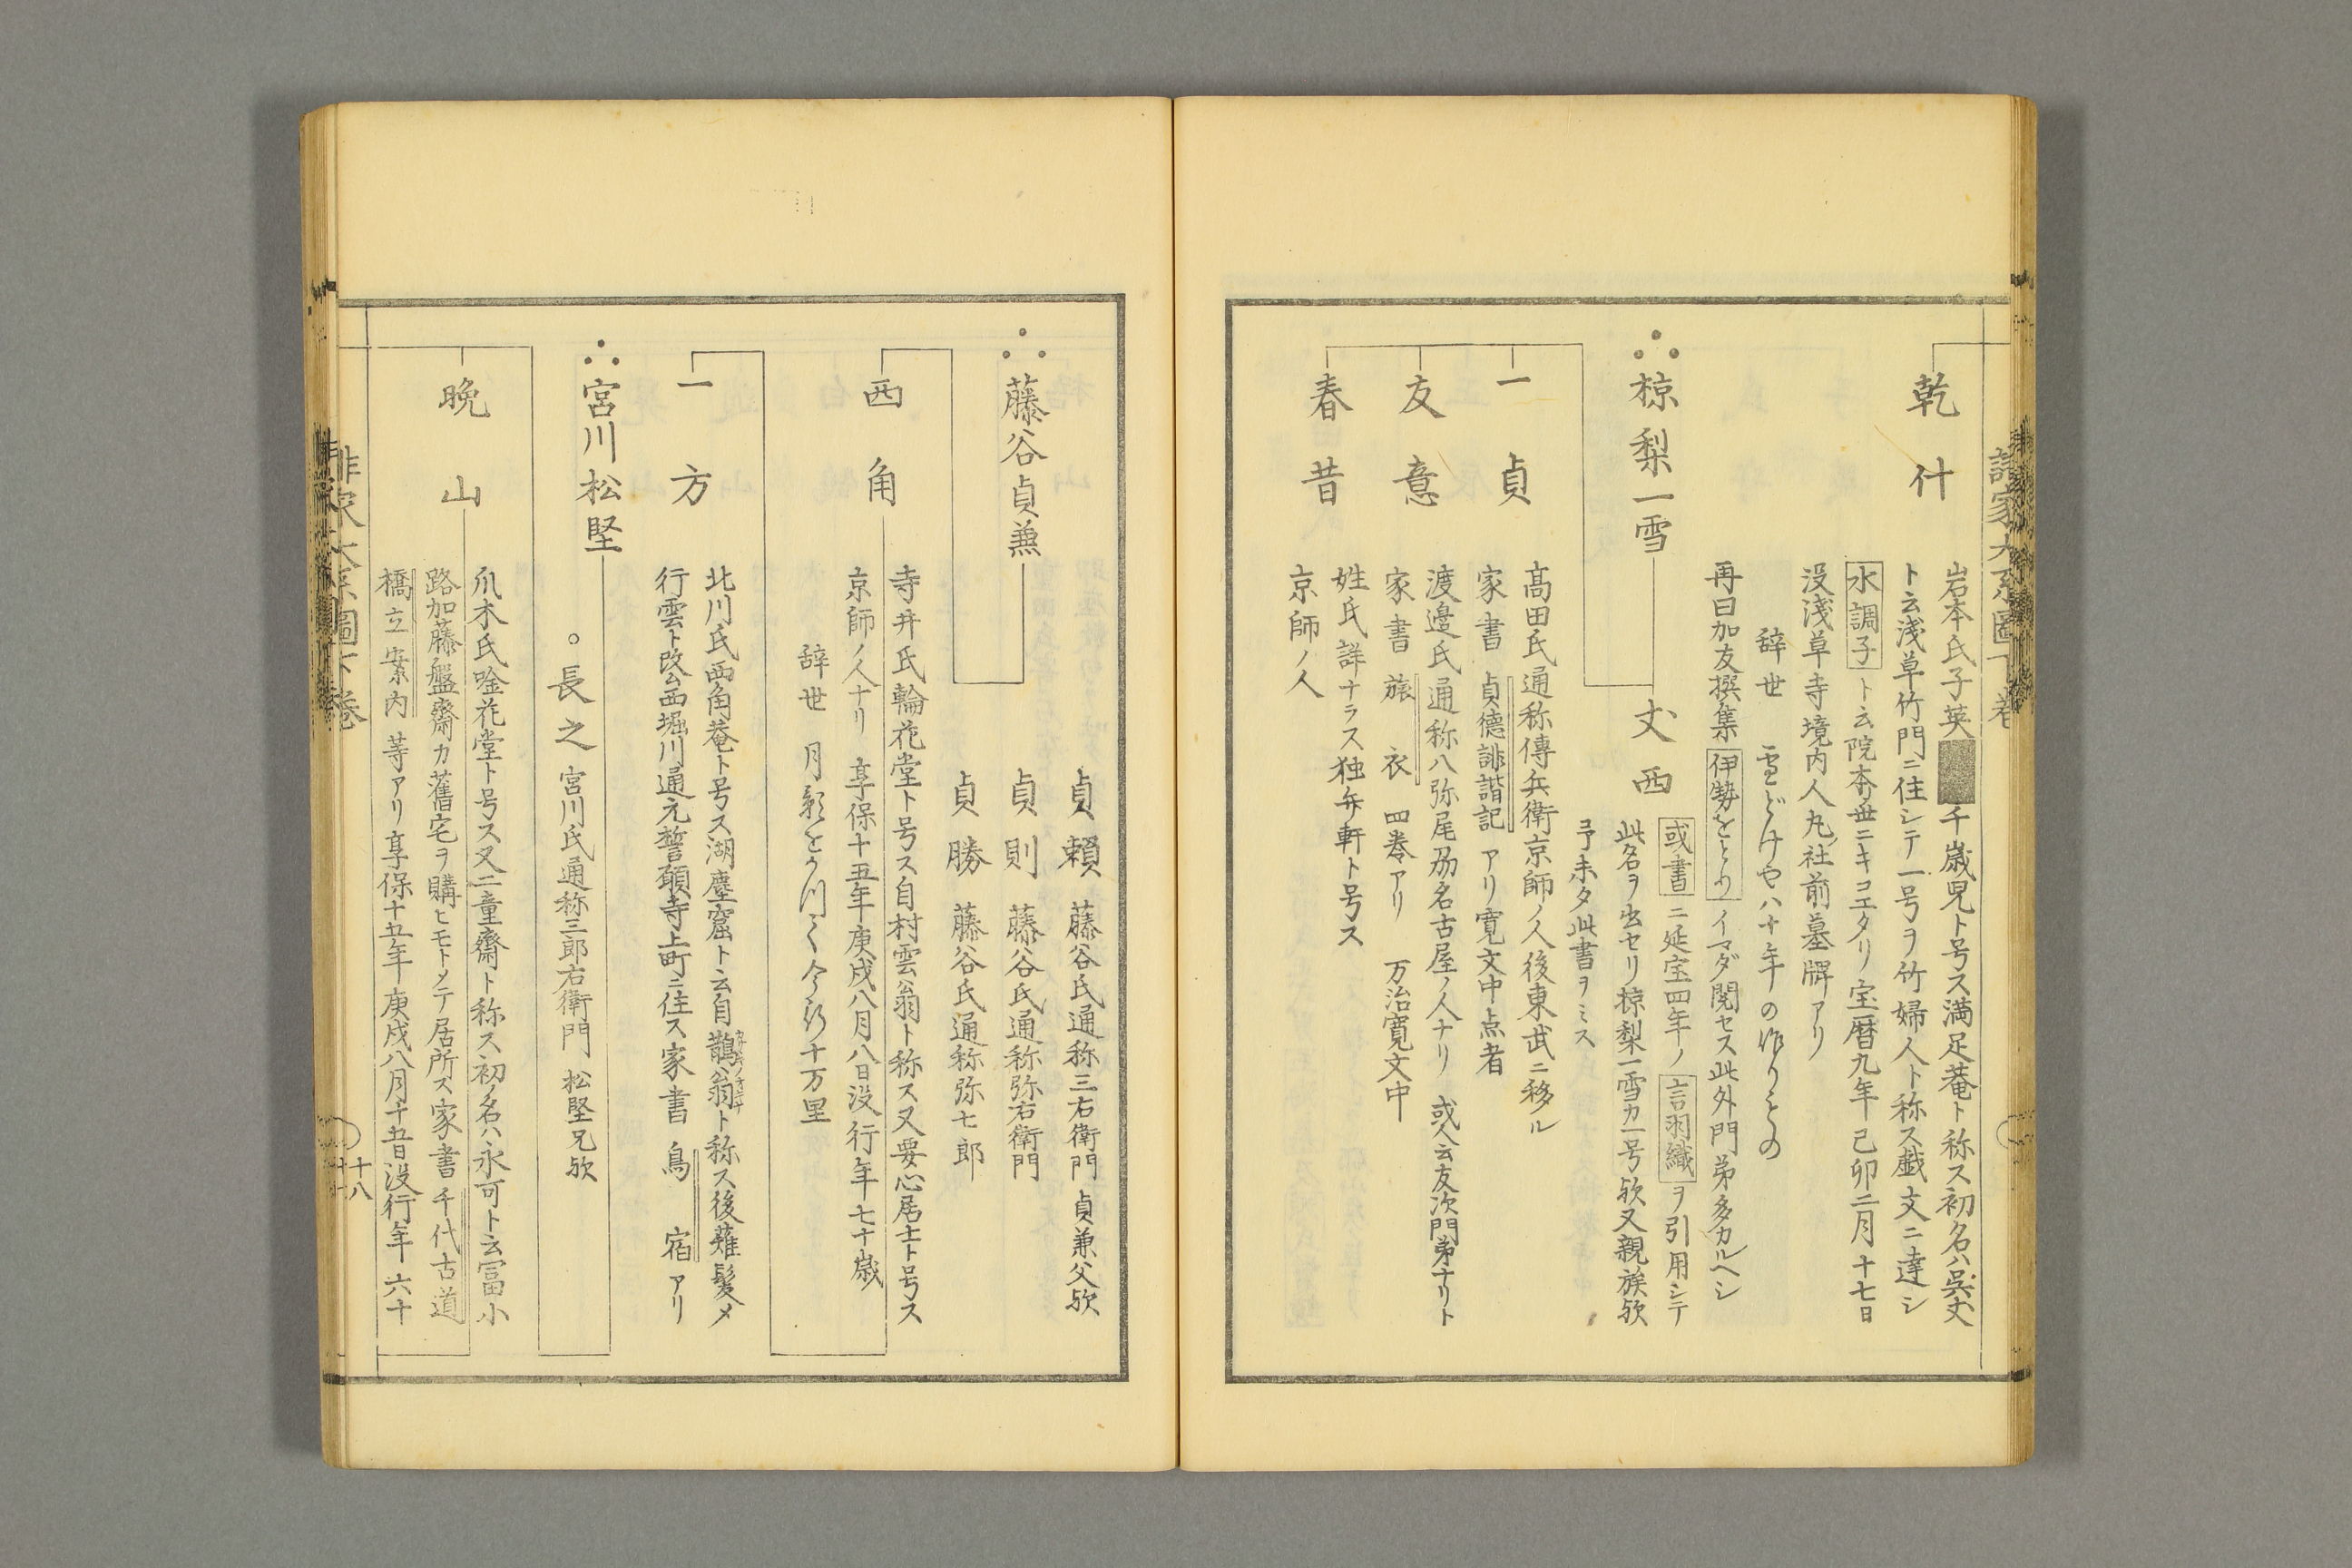 乾什
岩本氏子英
千歳児ト号ス満足菴ト称ス初名ハ呉丈
ト云浅草竹門ニ住シテ一号ヲ竹婦人ト称ス戯文ニ達シ
水調子ト云院本世ニキコエタリ宝暦九年己卯二月十七日
没浅草寺境内人丸社前墓牌アリ
辞世 雪どけや八十年の作りもの
再曰加友撰集伊勢をどりイマダ閲セス此外門弟多カルヘシ
椋梨一雪
丈西
或書ニ延宝四年ノ言羽織ヲ引用シテ
此名ヲ出セリ椋梨一雪カ一号欤又親族欤
予未タ此書ヲミス
一貞
髙田氏通称傳兵衛京師ノ人後東武ニ移ル
家書 貞德誹諧記 アリ寛文中ト点者
友意
渡邉氏通称八弥尾刕名古屋ノ人ナリ 或人云友次門弟ナリト
家書 旅衣 四巻アリ 万治寛文中
春昔
姓氏詳ナラス独弁軒ト号ス
京師ノ人
藤谷貞兼
貞頼 藤谷氏通称三右衛門 貞兼父欤
貞則 藤谷氏通称弥右衛門
貞勝 藤谷氏通称弥七郎
西角
寺井氏輪花堂ト号ス自村雲翁ト称ス又要心居士ト号ス
京師ノ人ナリ 享保十五年庚戌八月八日没行年七十歳
辞世 月影を
十万里
一方
北川氏西角菴ト号ス湖塵窟ト云自鵲翁ト称ス後薙髪メ
行雲ト改ム西堀川通元誓願寺上町ニ住ス家書 鳥宿 アリ
宮川松堅
長之 宮川氏通称三郎右衛門 松堅兄欤
晩山
爪木氏唫花堂ト号ス又二童齋ト称ス初ノ名ハ永可ト云冨小
路加藤盤齋カ舊宅ヲ購ヒモトメテ居所ス家書 千代古道
橋立案内 等アリ享保十五年庚戌八月十五日没行年六十
誹家大系圖下巻
十八